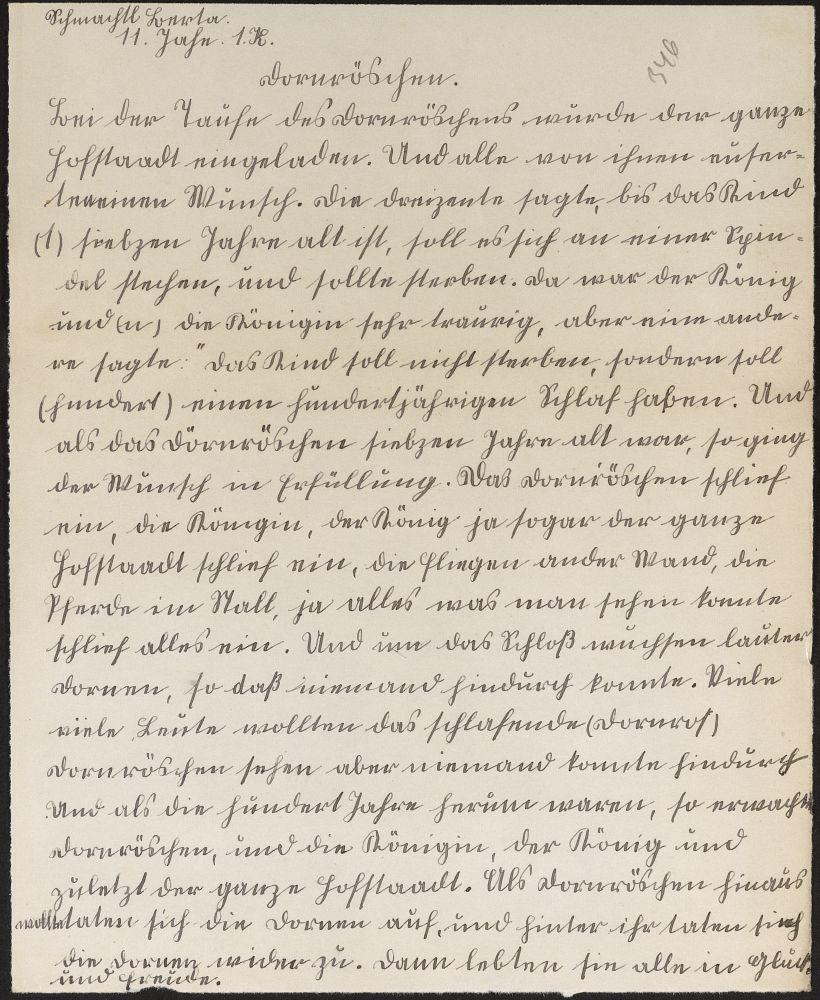 Schmachtl Berta.
11. Jahr. 1.K.
346
Dornröschen.
Bei der Taufe des Dornröschens wurde der ganze
Hofstaadt eingeladen. Und alle von ihnen eußer-
teneinen Wunsch. Die dreizente sagte, bis das Kind
(1) siebzen Jahre alt ist, soll es sich an einer Spin-
del stechen, und sollte sterben. Da war der König
und (n) die Königin sehr traurig, aber eine ande-
re sagte: "Das Kind soll nicht sterben, sondern soll
(hundert) einen hundertjährigen Schlaf haben. Und
als das Dörnröschen siebzen Jahre alt war, so ging
der Wunsch in Erfüllung. Das Dornröschen schlief
ein, die Königin, der König ja sogar der ganze
Hofstaadt schlief ein, die Fliegen ander Wand, die
Pferde im Stall, ja alles was man sehen konnte
schlief alles ein. Und um das Schloß wuchsen lauter
Dornen, so daß niemand hindurch konnte. Viele
viele Leute wollten das schlafende (Dornros)
Dornröschen sehen aber niemand konnte hindurch
Und als die hundert Jahre herum waren, so erwachte
Dornröschen, und die Königin, der König und
zuletzt der ganze Hofstaadt. Als Dornröschen hinaus
wollte taten sich die Dornen auf, und hinter ihr taten sich
die Dornen wider zu. Dann lebten sie alle in Glück
und Freude.